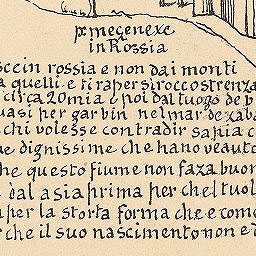 p meçenexe
in Rossia
sce in rossia e non dai monti
a quelli e tira per sirocco strenza
circa 20 mia e poi dal luogo de b
uasi per garbin nel mar de zaba
chi volesse contradir sapia c
e dignissime che hano veauto
he questo fiume non faza buon
dal asia prima per chel tuol
per la storta forma che e come
r che il suo nascimento non e d